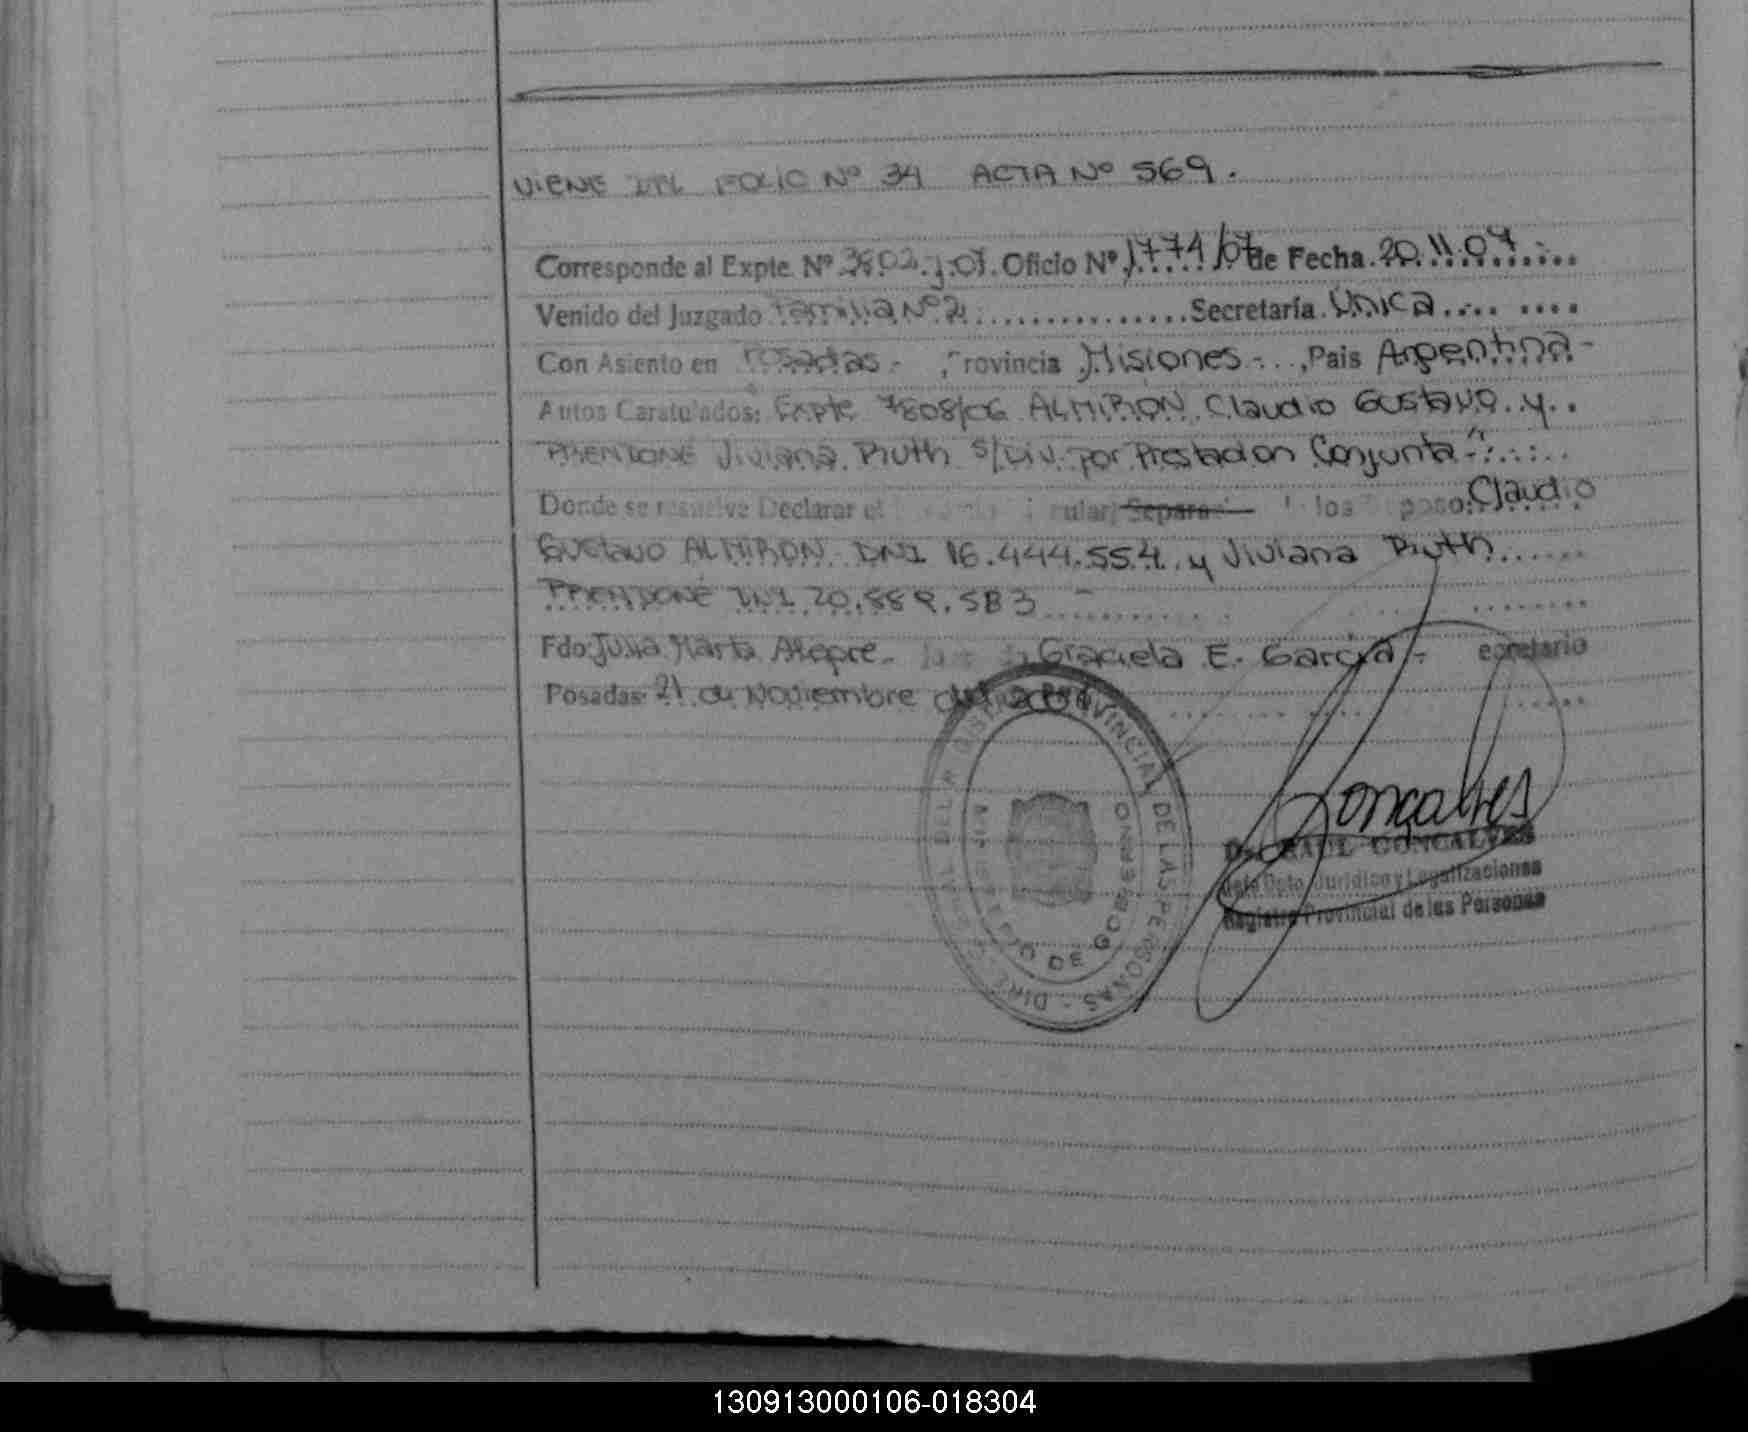 VIENE DEL FOLIO Nº 34 ACTA Nº 569.
Corresponde al Expte. Nº 3802.J.07. Oficio Nº 1774/07 de Fecha 20.11.07
Venido del Juzgado Familia Nº 2 Secretaría Unica
Con Asiento en Posadas - Provincia Misiones - , Pais Argentina -
Autos Caratulados: Expte 7808/06 ALMIRON Claudio Gustavo y
Viviana Ruth S/Div. por Prestacion Conjunta"
Donde se resuelve Declarar el los Esposo: Claudio
Gustavo ALMIRON DNI 16.444.554 y Viviana Ruth
DNI
Fdo: Julia Marta Alegre. Graciela E. Garcia - Secretario
Posadas 21 de Noviembre del 2007
DIRECCION GENERAL DEL REGISTRO PROVINCIAL DE LAS PERSONAS
MINISTERIO DE GOBIERNO
Goncalves
Dr. RAUL GONCALVES
Jefe Dpto. Jurídico y Legalizaciones
Registro Provincial de las Personas
130913000106-018304